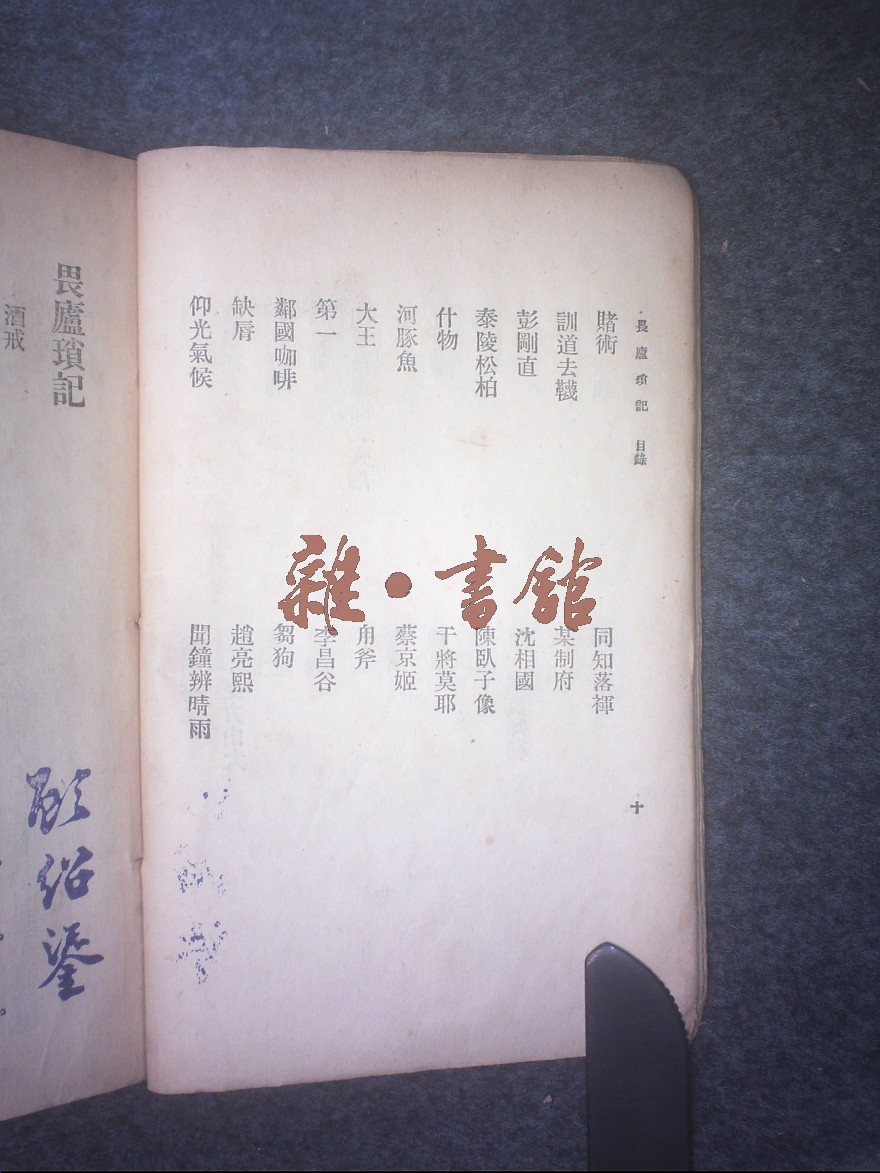 畏廬瑣記 目錄
十
賭術
訓道去韈
彭剛直
泰陵松柏
什物
河豚魚
大王
第一
鄰國咖啡
缺脣
仰光氣候
同知落褌
某制府
沈相國
陳臥子像
干將莫耶
蔡京姬
角斧
李昌谷
芻狗
趙亮熙
聞鐘辨晴雨
雜·書館
畏廬瑣記
酒戒